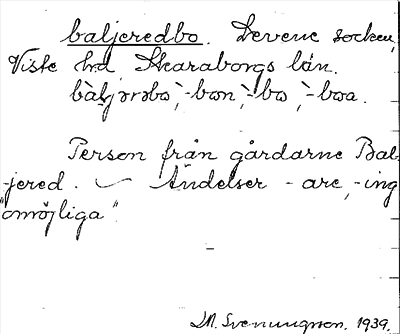 baljeredbo. Levene socken,
Viste hd, Skaraborgs län.
bàljərəbo, -bon, -bo, -boa.
Person från gårdarne Bal-
jered. — Ändelser -are, -ing
"omöjliga".
M. Svenungson. 1939.